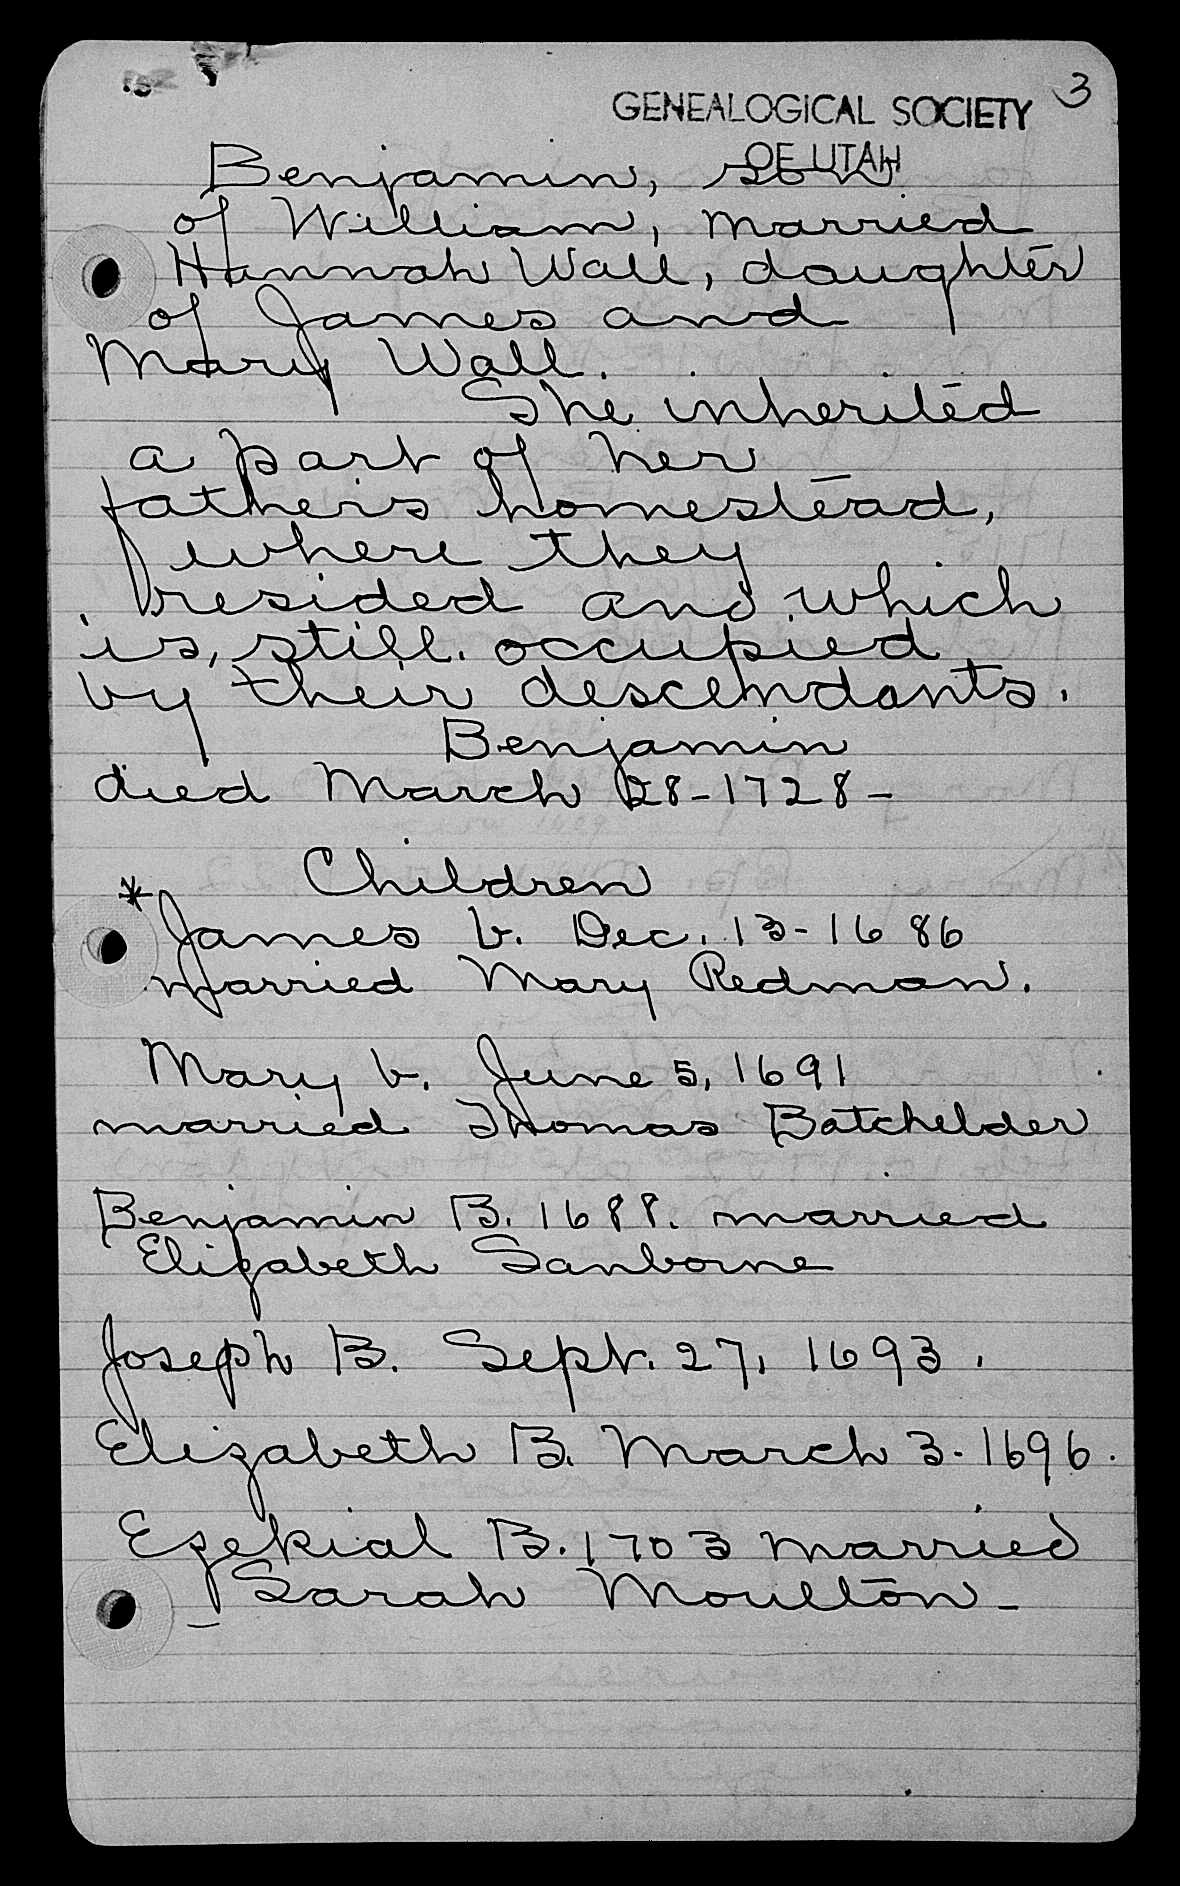 GENEALOGICAL SOCIETY 3
OF UTAH
Benjamin, son
of William, married
Hannah Wall, daughter
of James and
Mary Wall.
She inherited
a part of her
father's homestead,
where they
resided and which
is, still occupied
by their descendants.
Benjamin
died March 28-1728-
Children
*James b. Dec. 13-1686
married Mary Redman.
Mary b. June 5, 1691
married Thomas Batchelder
Benjamin B. 1688. married
Elizabeth Sanborne
Joseph B. Sept. 27, 1693.
Elizabeth B. March 3-1696.
Ezekial B. 1703 married
Sarah Moulton-